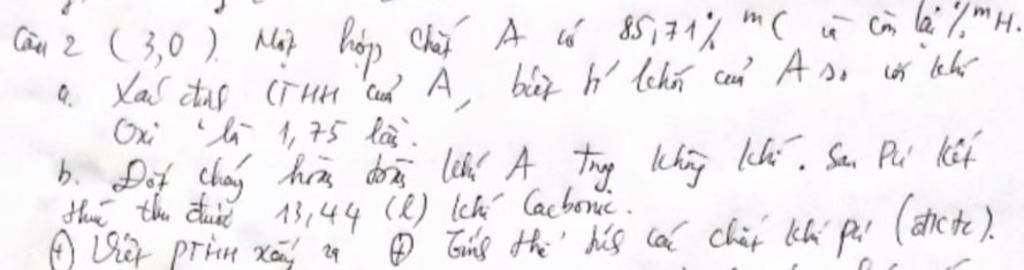 Câu 2 (3,0). Một hợp chất A có 85,71% mC và còn lại % mH.
a. Xác định CTHH của A, biết tỉ khối của A so với khí
Oxi là 1,75 lần.
b. Đốt cháy hoàn toàn khí A trong không khí. Sau Pư kết
thúc thu được 13,44 (l) khí Cacbonic.
(+) Viết PTHH xảy ra (+) Tính thể tích các chất khí pư (đktc).